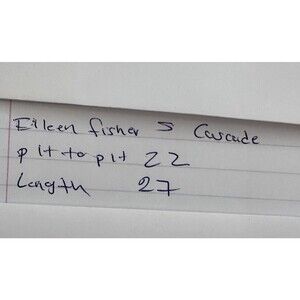 Eileen fisher S Cascade
pit to pit 22
Length 27